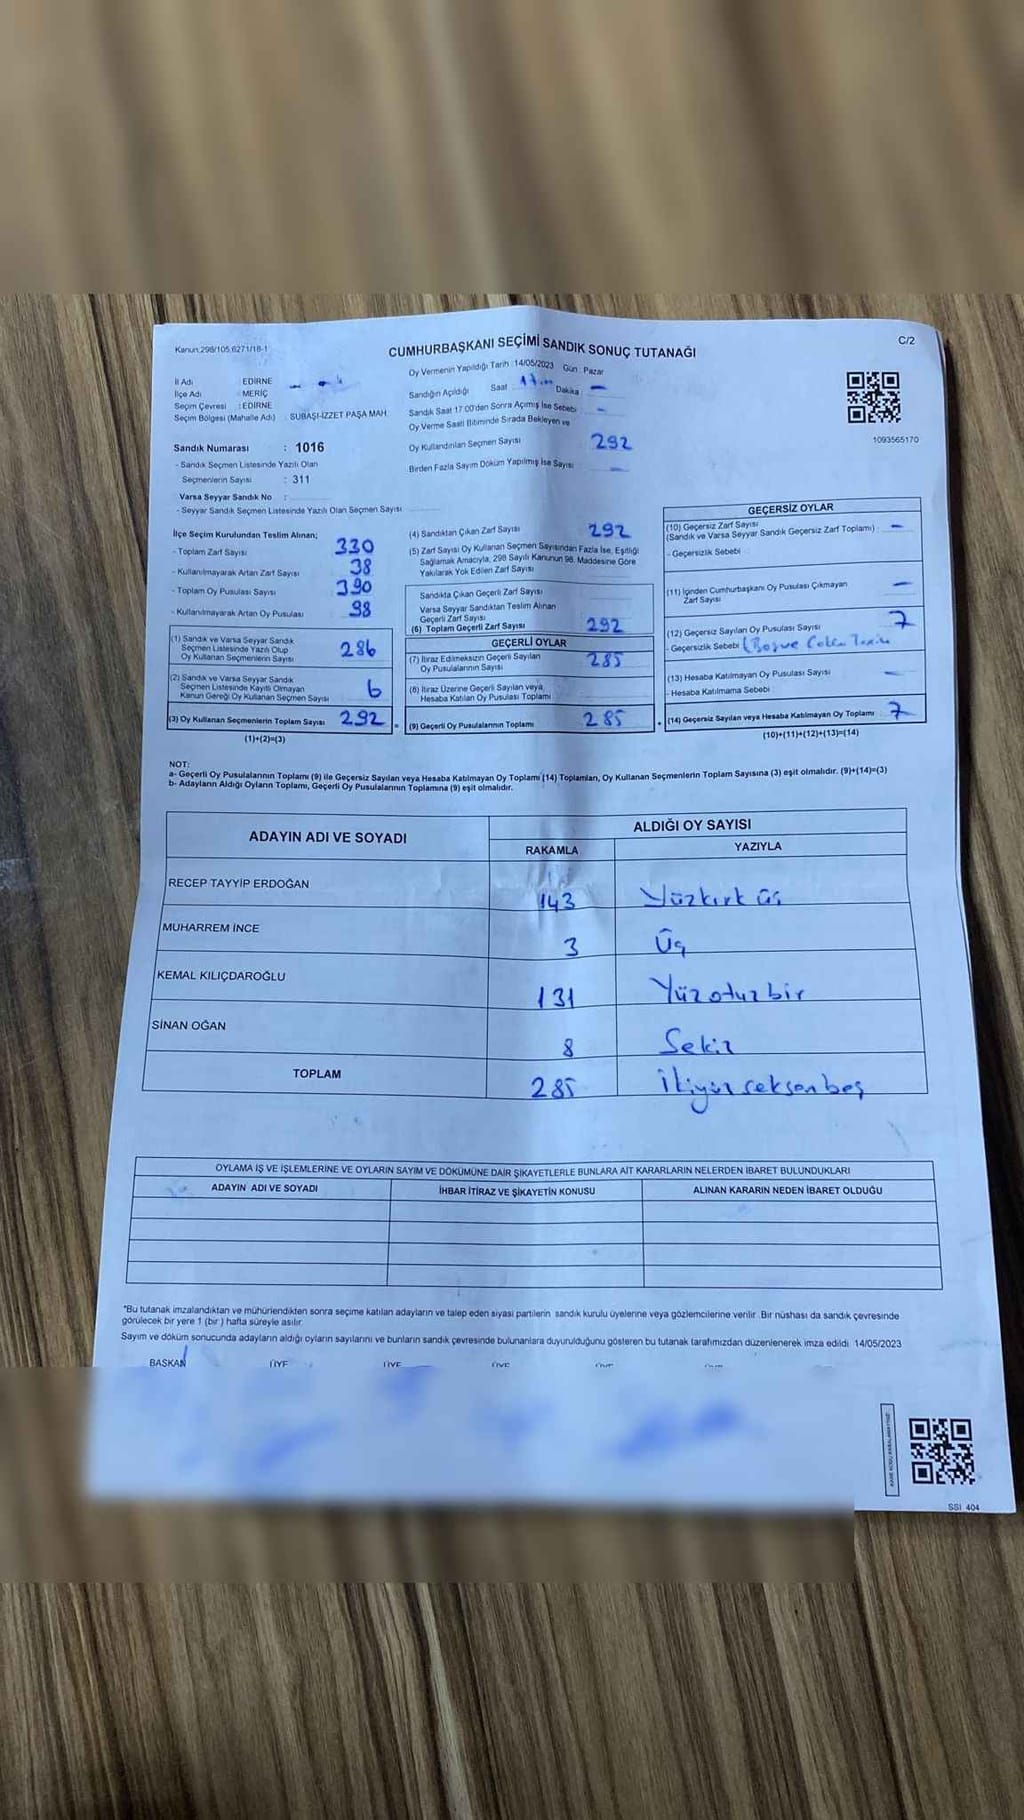 Kanun:298/105,6271/18-1
C/2
CUMHURBAŞKANI SEÇİMİ SANDIK SONUÇ TUTANAĞI
İl Adı : EDİRNE
İlçe Adı : MERİÇ
Seçim Çevresi : EDİRNE
Seçim Bölgesi (Mahalle Adı) : SUBAŞI-İZZET PAŞA MAH.
Sandık Numarası : 1016
- Sandık Seçmen Listesinde Yazılı Olan
Seçmenlerin Sayısı : 311
Varsa Seyyar Sandık No :
- Seyyar Sandık Seçmen Listesinde Yazılı Olan Seçmen Sayısı
Oy Vermenin Yapıldığı Tarih : 14/05/2023 Gün : Pazar
Sandığın Açıldığı Saat 17.00 Dakika : -
Sandık Saat 17:00'den Sonra Açılmış İse Sebebi -
Oy Verme Saati Bitiminde Sırada Bekleyen ve
Oy Kullandırılan Seçmen Sayısı 292
Birden Fazla Sayım Döküm Yapılmış İse Sayısı -
1093565170
İlçe Seçim Kurulundan Teslim Alınan;
- Toplam Zarf Sayısı 330
- Kullanılmayarak Artan Zarf Sayısı 38
- Toplam Oy Pusulası Sayısı 390
- Kullanılmayarak Artan Oy Pusulası 98
(1) Sandık ve Varsa Seyyar Sandık
Seçmen Listesinde Yazılı Olup
Oy Kullanan Seçmenlerin Sayısı 286
(2) Sandık ve Varsa Seyyar Sandık
Seçmen Listesinde Kayıtlı Olmayan
Kanun Gereği Oy Kullanan Seçmen Sayısı 6
(3) Oy Kullanan Seçmenlerin Toplam Sayısı 292
(1)+(2)=(3)
(4) Sandıktan Çıkan Zarf Sayısı 292
(5) Zarf Sayısı Oy Kullanan Seçmen Sayısından Fazla İse, Eşitliği
Sağlamak Amacıyla, 298 Sayılı Kanunun 98. Maddesine Göre
Yakılarak Yok Edilen Zarf Sayısı
Sandıkta Çıkan Geçerli Zarf Sayısı
Varsa Seyyar Sandıktan Teslim Alınan
Geçerli Zarf Sayısı
(6) Toplam Geçerli Zarf Sayısı 292
GEÇERLİ OYLAR
(7) İtiraz Edilmeksizin Geçerli Sayılan
Oy Pusulalarının Sayısı 285
(8) İtiraz Üzerine Geçerli Sayılan veya
Hesaba Katılan Oy Pusulası Toplamı
= (9) Geçerli Oy Pusulalarının Toplamı 285
GEÇERSİZ OYLAR
(10) Geçersiz Zarf Sayısı
(Sandık ve Varsa Seyyar Sandık Geçersiz Zarf Toplamı) : -
- Geçersizlik Sebebi
(11) İçinden Cumhurbaşkanı Oy Pusulası Çıkmayan
Zarf Sayısı -
(12) Geçersiz Sayılan Oy Pusulası Sayısı 7
- Geçersizlik Sebebi
(13) Hesaba Katılmayan Oy Pusulası Sayısı -
- Hesaba Katılmama Sebebi
+ (14) Geçersiz Sayılan veya Hesaba Katılmayan Oy Toplamı 7
(10)+(11)+(12)+(13)=(14)
NOT:
a- Geçerli Oy Pusulalarının Toplamı (9) ile Geçersiz Sayılan veya Hesaba Katılmayan Oy Toplamı (14) Toplamları, Oy Kullanan Seçmenlerin Toplam Sayısına (3) eşit olmalıdır. (9)+(14)=(3)
b- Adayların Aldığı Oyların Toplamı, Geçerli Oy Pusulalarının Toplamına (9) eşit olmalıdır.
ADAYIN ADI VE SOYADI
ALDIĞI OY SAYISI
RAKAMLA YAZIYLA
RECEP TAYYİP ERDOĞAN 143 Yüzkırk üç
MUHARREM İNCE 3 Üç
KEMAL KILIÇDAROĞLU 131 Yüzotuzbir
SİNAN OĞAN 8 Sekiz
TOPLAM 285 İkiyüzseksenbeş
OYLAMA İŞ VE İŞLEMLERİNE VE OYLARIN SAYIM VE DÖKÜMÜNE DAİR ŞİKAYETLERLE BUNLARA AİT KARARLARIN NELERDEN İBARET BULUNDUKLARI
ADAYIN ADI VE SOYADI İHBAR İTİRAZ VE ŞİKAYETİN KONUSU ALINAN KARARIN NEDEN İBARET OLDUĞU
*Bu tutanak imzalandıktan ve mühürlendikten sonra seçime katılan adayların ve talep eden siyasi partilerin sandık kurulu üyelerine veya gözlemcilerine verilir. Bir nüshası da sandık çevresinde
görülecek bir yere 1 (bir) hafta süreyle asılır.
Sayım ve döküm sonucunda adayların aldığı oyların sayılarını ve bunların sandık çevresinde bulunanlara duyurulduğunu gösteren bu tutanak tarafımızdan düzenlenerek imza edildi. 14/05/2023
BAŞKAN ÜYE ÜYE ÜYE ÜYE
SSI_404